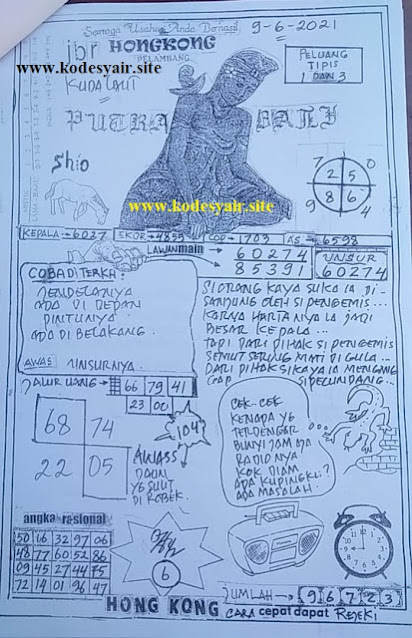 Semoga Usaha Anda Berhasil
9-6-2021
jbr HONGKONG
PELAMBANG
www.kodesyair.site
KUDA LAUT
PELUANG
TIPIS
1 DAN 3
PUTRA BALI
Shio
www.kodesyair.site
7 0
2 5
8 6
9 4
KEPALA → 6027 EKOR → 4859 COP → 1703 AS → 6598
LAWAN main
60274
85391
UNSUR
60274
COBA DI TERKA:
JENDELANYA
ADA DI DEPAN
PINTUNYA
ADA DI BELAKANG.
AWAS UNSURNYA.
SI ORANG KAYA SUKA IA DI-
SANJUNG OLEH SI PENGEMIS...
KARNA HARTANYA IA JADI
BESAR KEPALA...
TAPI DARI PIHAK SI PENGEMIS
SEMUT SERING MATI DI GULA...
DARI PIHAK SI KAYA IA MENANG
SI PECUNDANG...
JALUR UANG → 66 79 41
23 00
68 74
22 05
104
AWASS
DAUN
YG SULIT
DI ROBEK.
CEK-CEK
KENAPA YG
TERDENGAR
BUNYI JAM AJA
RADIO NYA
KOK DIAM
ADA KUPINGKU?
ADA MASALAH.
angka rasional
50 66 32 97 06
48 77 60 52 86
09 45 27 44 75
72 14 01 96 47
6
JUMLAH → 9 6 7 2 3
HONG KONG CARA cepat dapat REJEKI